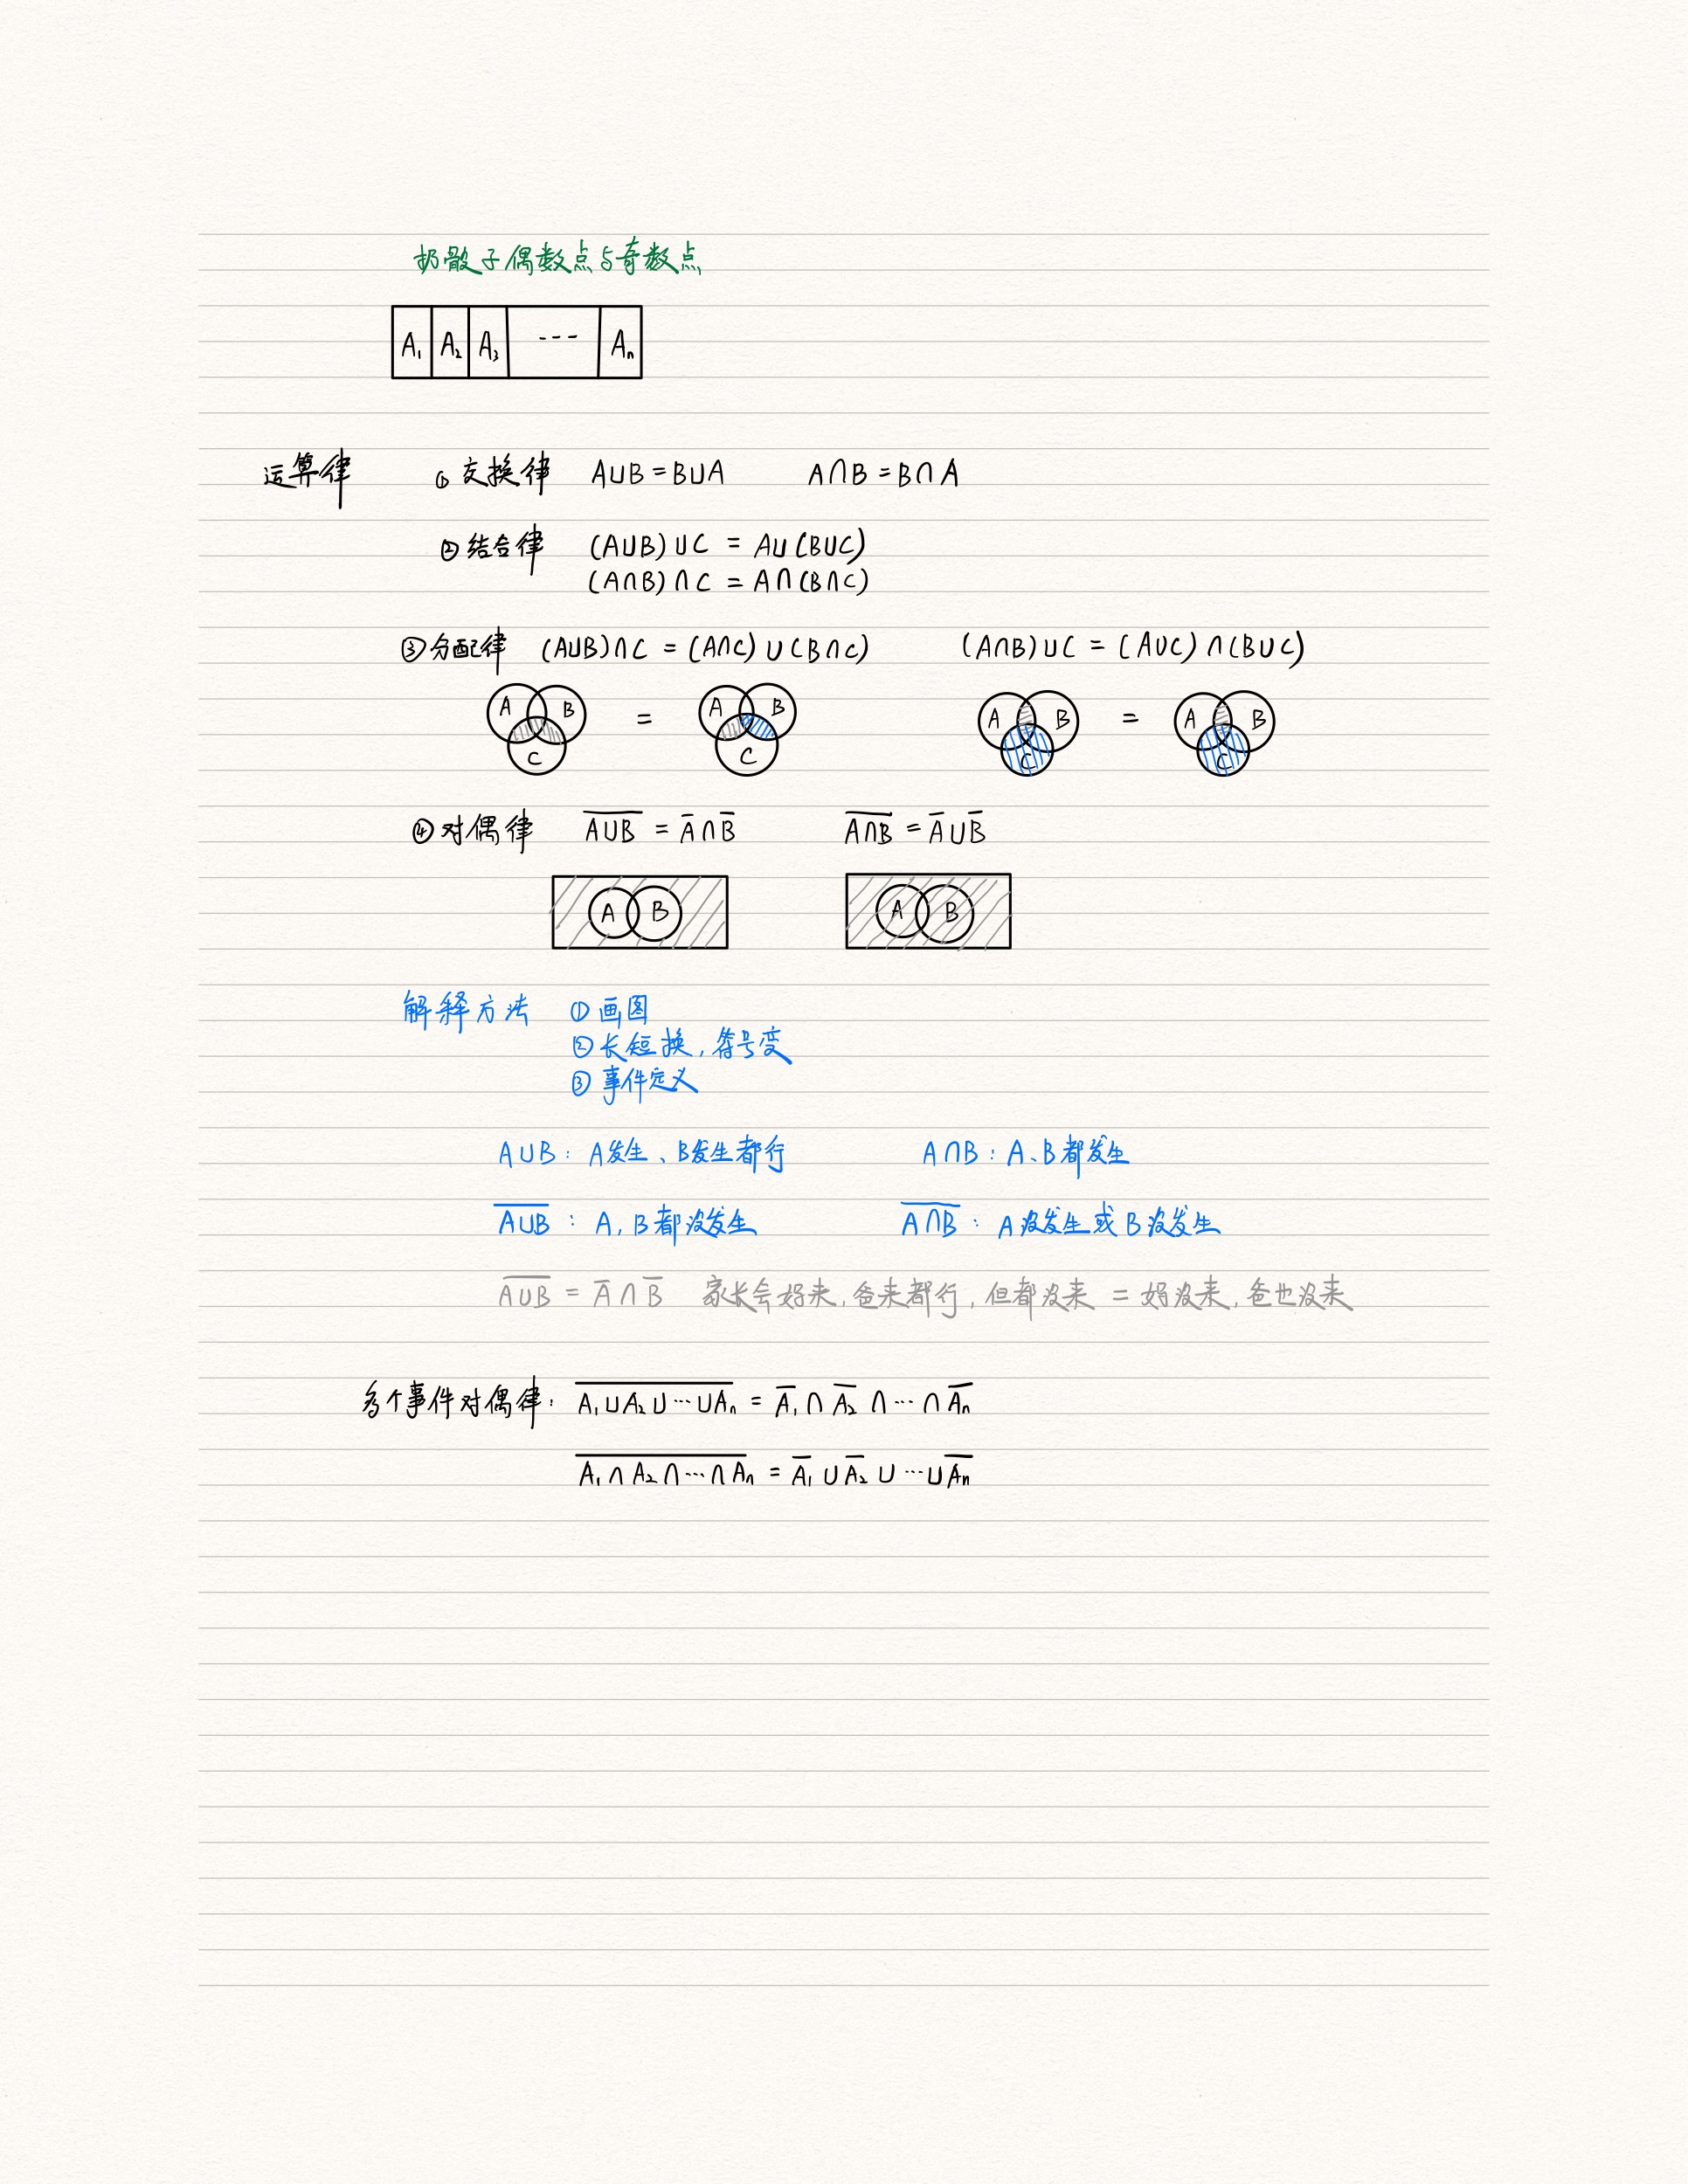 扔骰子偶数点与奇数点
A₁ A₂ A₃ --- Aₙ
运算律 ① 交换律 A∪B=B∪A A∩B=B∩A
② 结合律 (A∪B)∪C = A∪(B∪C)
(A∩B)∩C = A∩(B∩C)
③ 分配律 (A∪B)∩C = (A∩C)∪(B∩C) (A∩B)∪C = (A∪C)∩(B∪C)
A B C = A B C A B C = A B C
④ 对偶律 \overline{A∪B} = \overline{A}∩\overline{B} \overline{A∩B} = \overline{A}∪\overline{B}
A B A B
解释方法 ① 画图
② 长短换,符号变
③ 事件定义
A∪B: A发生、B发生都行 A∩B: A、B都发生
\overline{A∪B}: A,B都没发生 \overline{A∩B}: A没发生或B没发生
\overline{A∪B} = \overline{A}∩\overline{B} 家长会妈来,爸来都行,但都没来 = 妈没来,爸也没来
多个事件对偶律: \overline{A₁∪A₂∪⋯∪Aₙ} = \overline{A₁}∩\overline{A₂}∩⋯∩\overline{Aₙ}
\overline{A₁∩A₂∩⋯∩Aₙ} = \overline{A₁}∪\overline{A₂}∪⋯∪\overline{Aₙ}